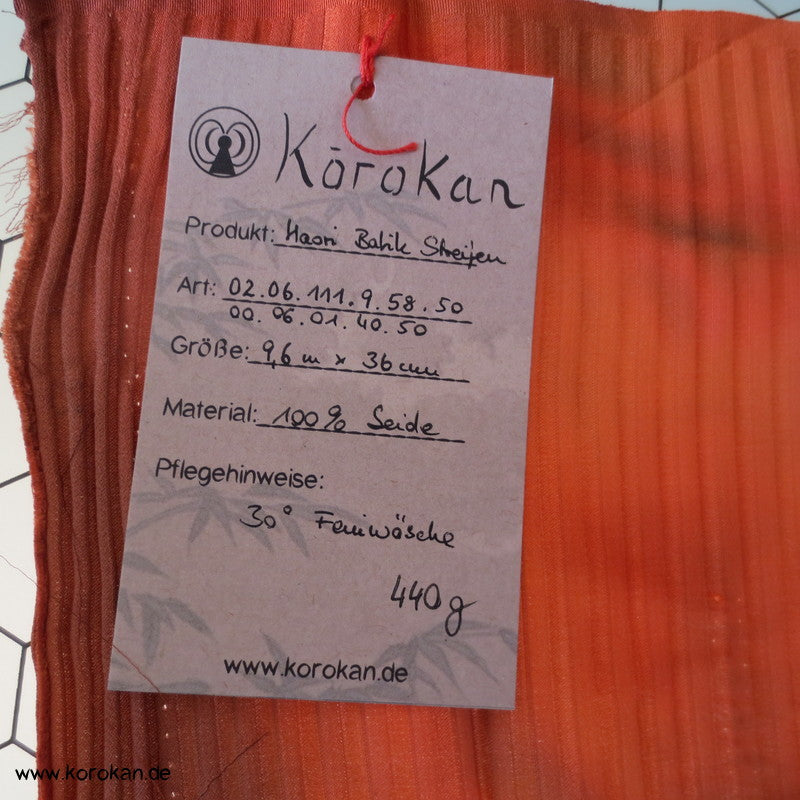 Kōrokan
Produkt: Haori Batik Streifen
Art: 02.06.111.9.58.50
00.06.01.40.50
Größe: 9,6 m x 36 cm
Material: 100% Seide
Pflegehinweise:
30° Feinwäsche
440g
www.korokan.de
www.korokan.de